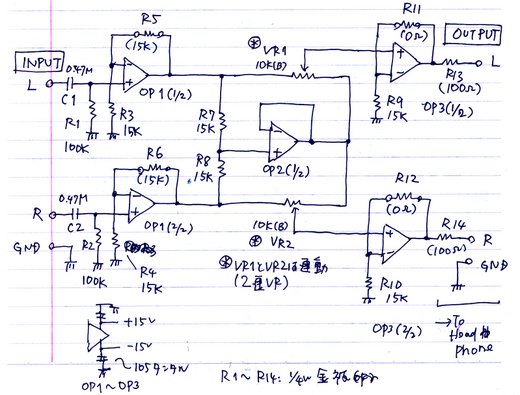 R11
(0Ω)
OUTPUT
R5
(15K)
※ VR1
10K(B)
INPUT
0.47M
L
C1
OP1(1/2)
R13
L
(100Ω)
R1
100K
R3
15K
R7
15K
R9
15K
OP3(1/2)
R6
(15K)
R8
15K
OP2(1/2)
R12
(0Ω)
0.47M
R
C2
OP1(2/2)
10K(B)
※ VR2
R14
R
(100Ω)
GND
R2
100K
R4
15K
※VR1とVR2は連動
(2重VR)
R10
15K
GND
OP3(2/2)
→To
Head
phone
+15V
-15V
OP1～OP3
R1～R14: 1/4W